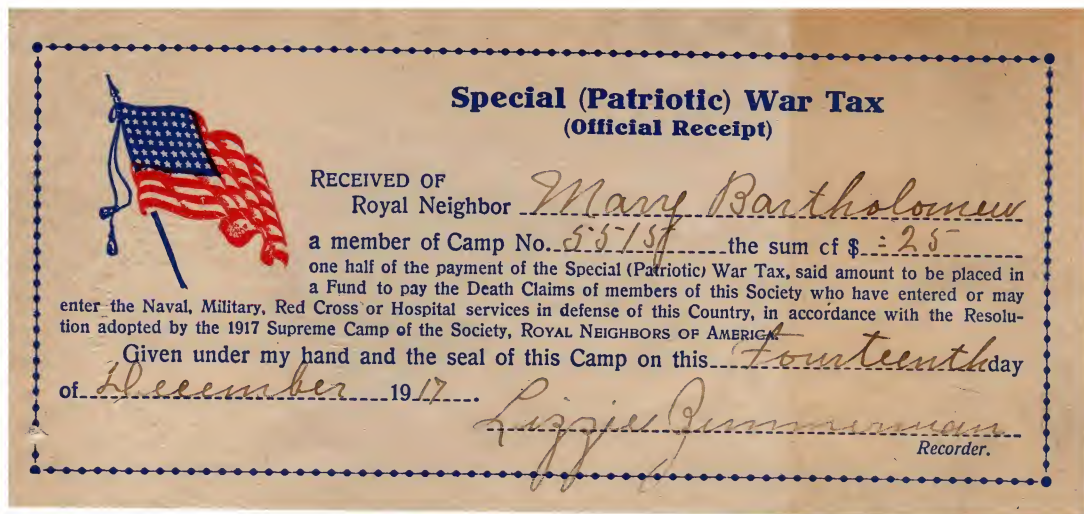 Special (Patriotic) War Tax
(Official Receipt)
RECEIVED OF
Royal Neighbor Mary Bartholomew
a member of Camp No. the sum of $ =25
one half of the payment of the Special (Patriotic) War Tax, said amount to be placed in
a Fund to pay the Death Claims of members of this Society who have entered or may
enter the Naval, Military, Red Cross or Hospital services in defense of this Country, in accordance with the Resolu-
tion adopted by the 1917 Supreme Camp of the Society, ROYAL NEIGHBORS OF AMERICA.
Given under my hand and the seal of this Camp on this Fourteenth day
of December 1917.
Lizzie Zimmerman
Recorder.